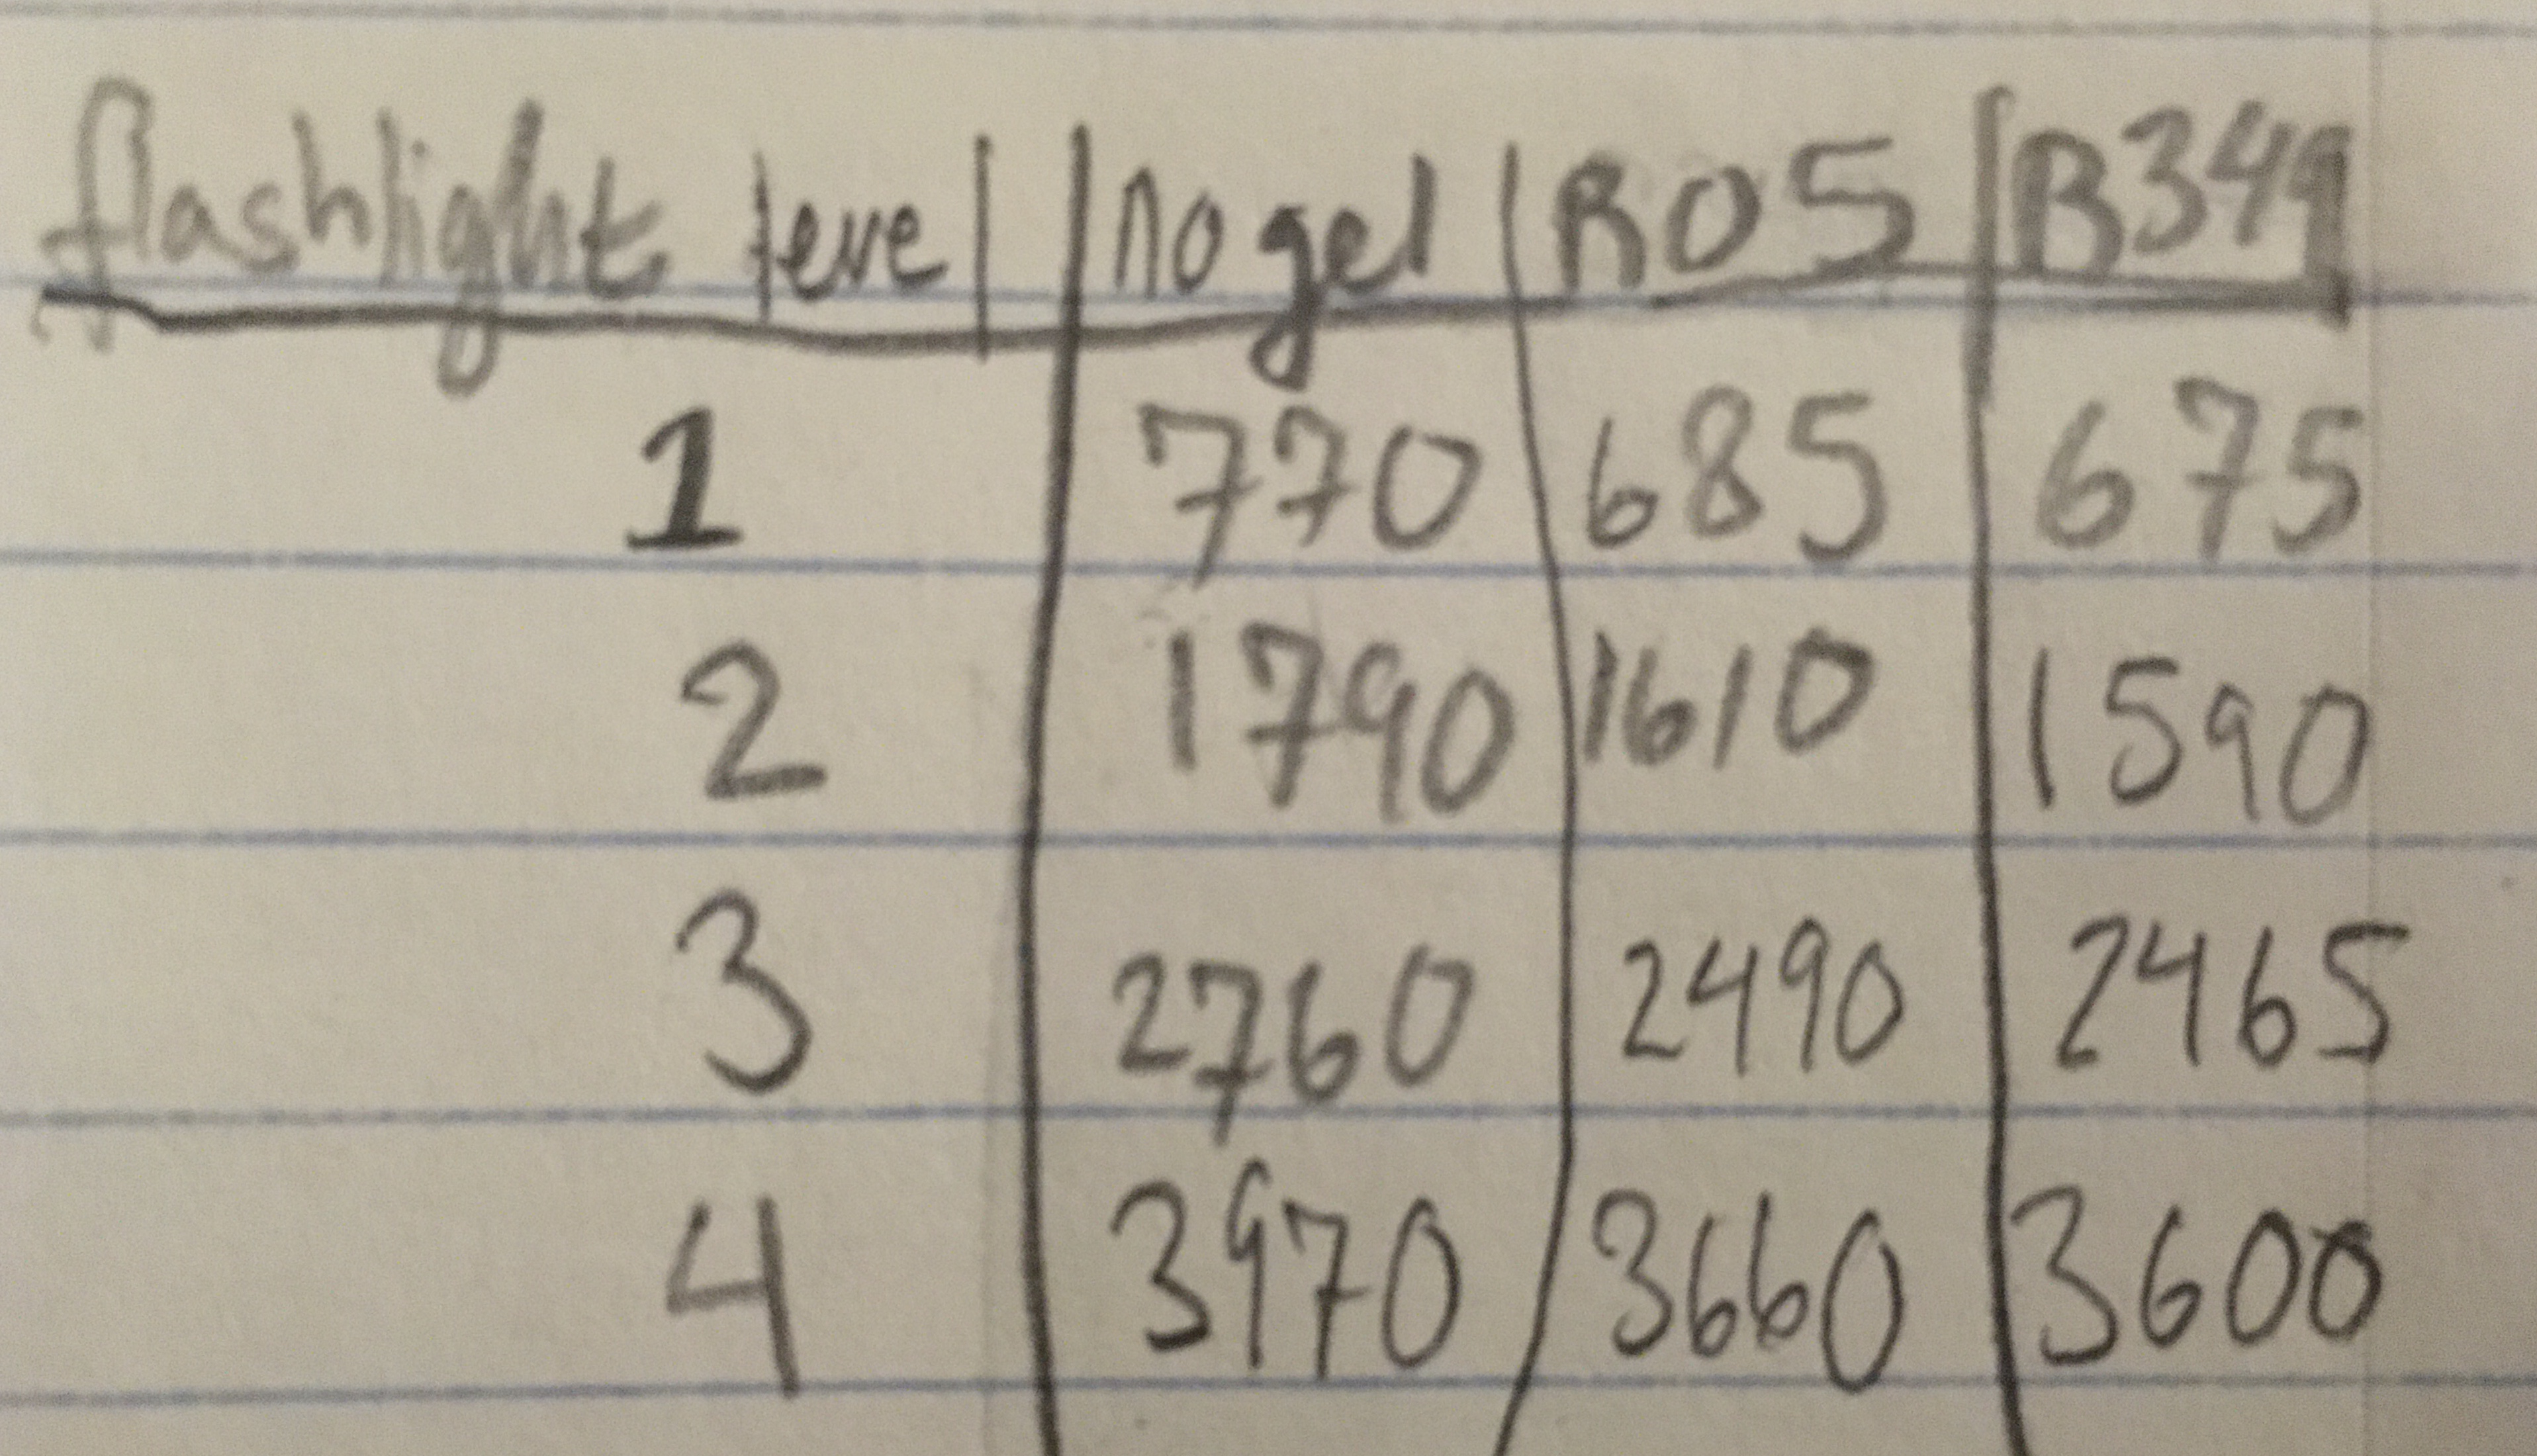 flashlight level no gel R05 B349
1 770 685 675
2 1790 1610 1590
3 2760 2490 2465
4 3970 3660 3600